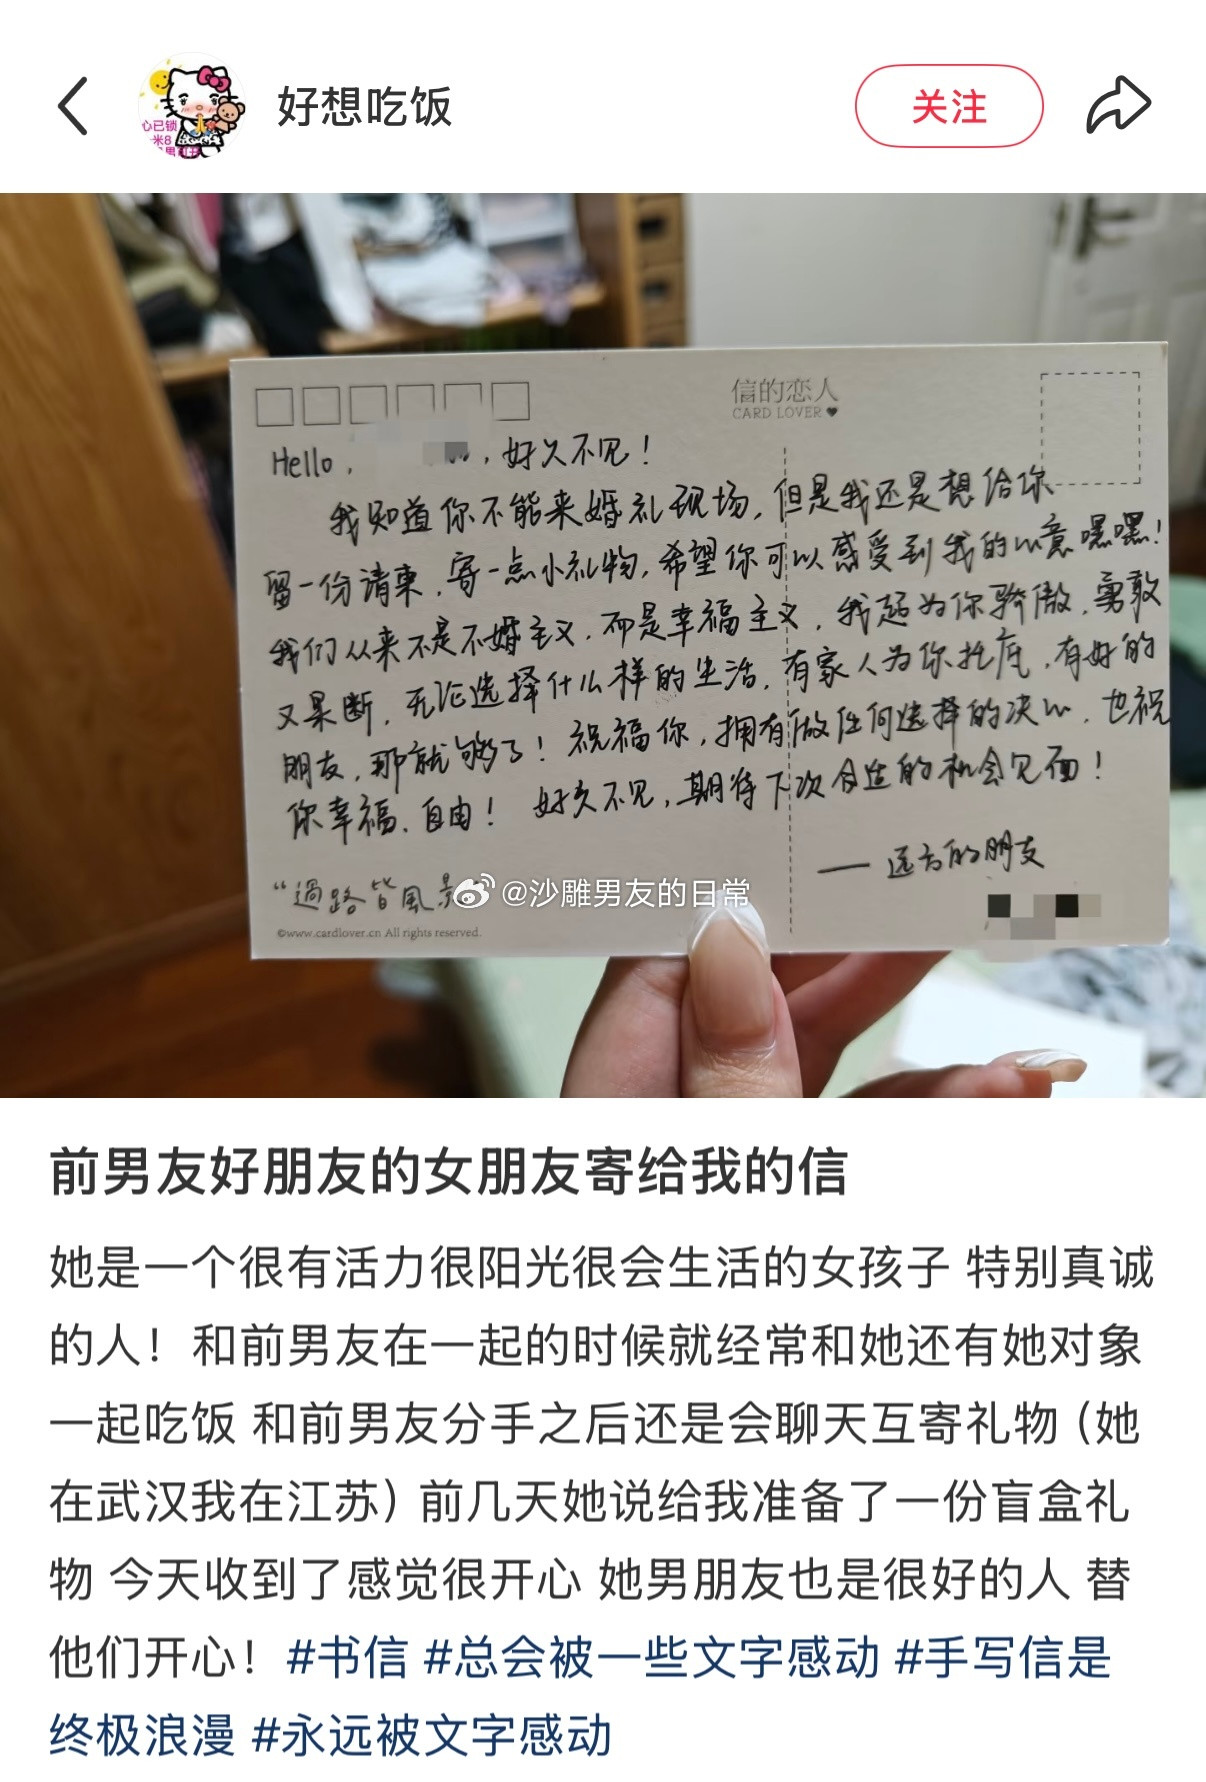 好想吃饭
关注
心已锁
米8
信的恋人
CARD LOVER
Hello, ,好久不见!
我知道你不能来婚礼现场,但是我还是想给你
留一份请柬,寄一点小礼物,希望你可以感受到我的心意嘿嘿!
我们从来不是不婚主义,而是幸福主义,我超为你骄傲,勇敢
又果断,无论选择什么样的生活,有家人为你托底,有好的
朋友,那就够了!祝福你,拥有做任何选择的决心,也祝
你幸福、自由!好久不见,期待下次合适的机会见面!
——远方的朋友
“過路皆風景
@沙雕男友的日常
©www.cardlover.cn All rights reserved.
前男友好朋友的女朋友寄给我的信
她是一个很有活力很阳光很会生活的女孩子 特别真诚
的人!和前男友在一起的时候就经常和她还有她对象
一起吃饭 和前男友分手之后还是会聊天互寄礼物(她
在武汉我在江苏)前几天她说给我准备了一份盲盒礼
物 今天收到了感觉很开心 她男朋友也是很好的人 替
他们开心!#书信 #总会被一些文字感动 #手写信是
终极浪漫 #永远被文字感动